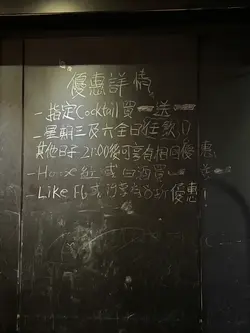 優惠詳情
- 指定Cocktail買一送一
- 星期三及六全日狂歡
其他日子 21:00後可享有相同優惠
- House 紅或白酒買一送一
- Like FB 優惠